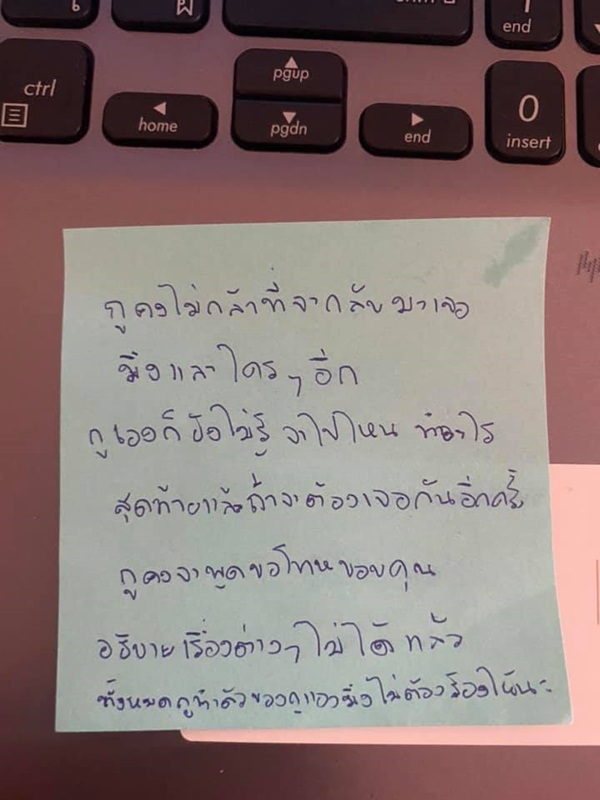 ctrl
home
pgup
pgdn
end
end
0
insert
กูคงไม่กล้าที่จะกลับมาเจอ
มึงและใครๆ อีก
กูเองก็ยังไม่รู้ จะไปไหน ทำอะไร
สุดท้ายแล้วถ้าจะต้องเจอกันอีกครั้ง
กูคงจะพูดขอโทษขอบคุณ
อธิบายเรื่องต่างๆ ไม่ได้แล้ว
ทั้งหมดกูทำตัวของกูเองมึงไม่ต้องร้องไห้นะ